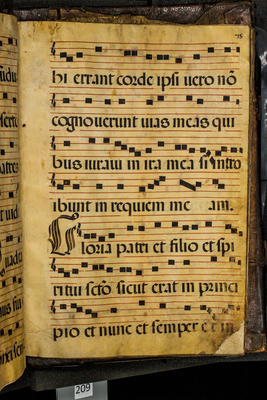 hi errant corde ipsi uero nō
cognouerunt uias meas qui
bus iuraui in ira mea si intro
ibunt in requiem me am.
Gloria patri et filio et spi
ritui scto sicut erat in princi
pio et nunc et semper et in
209